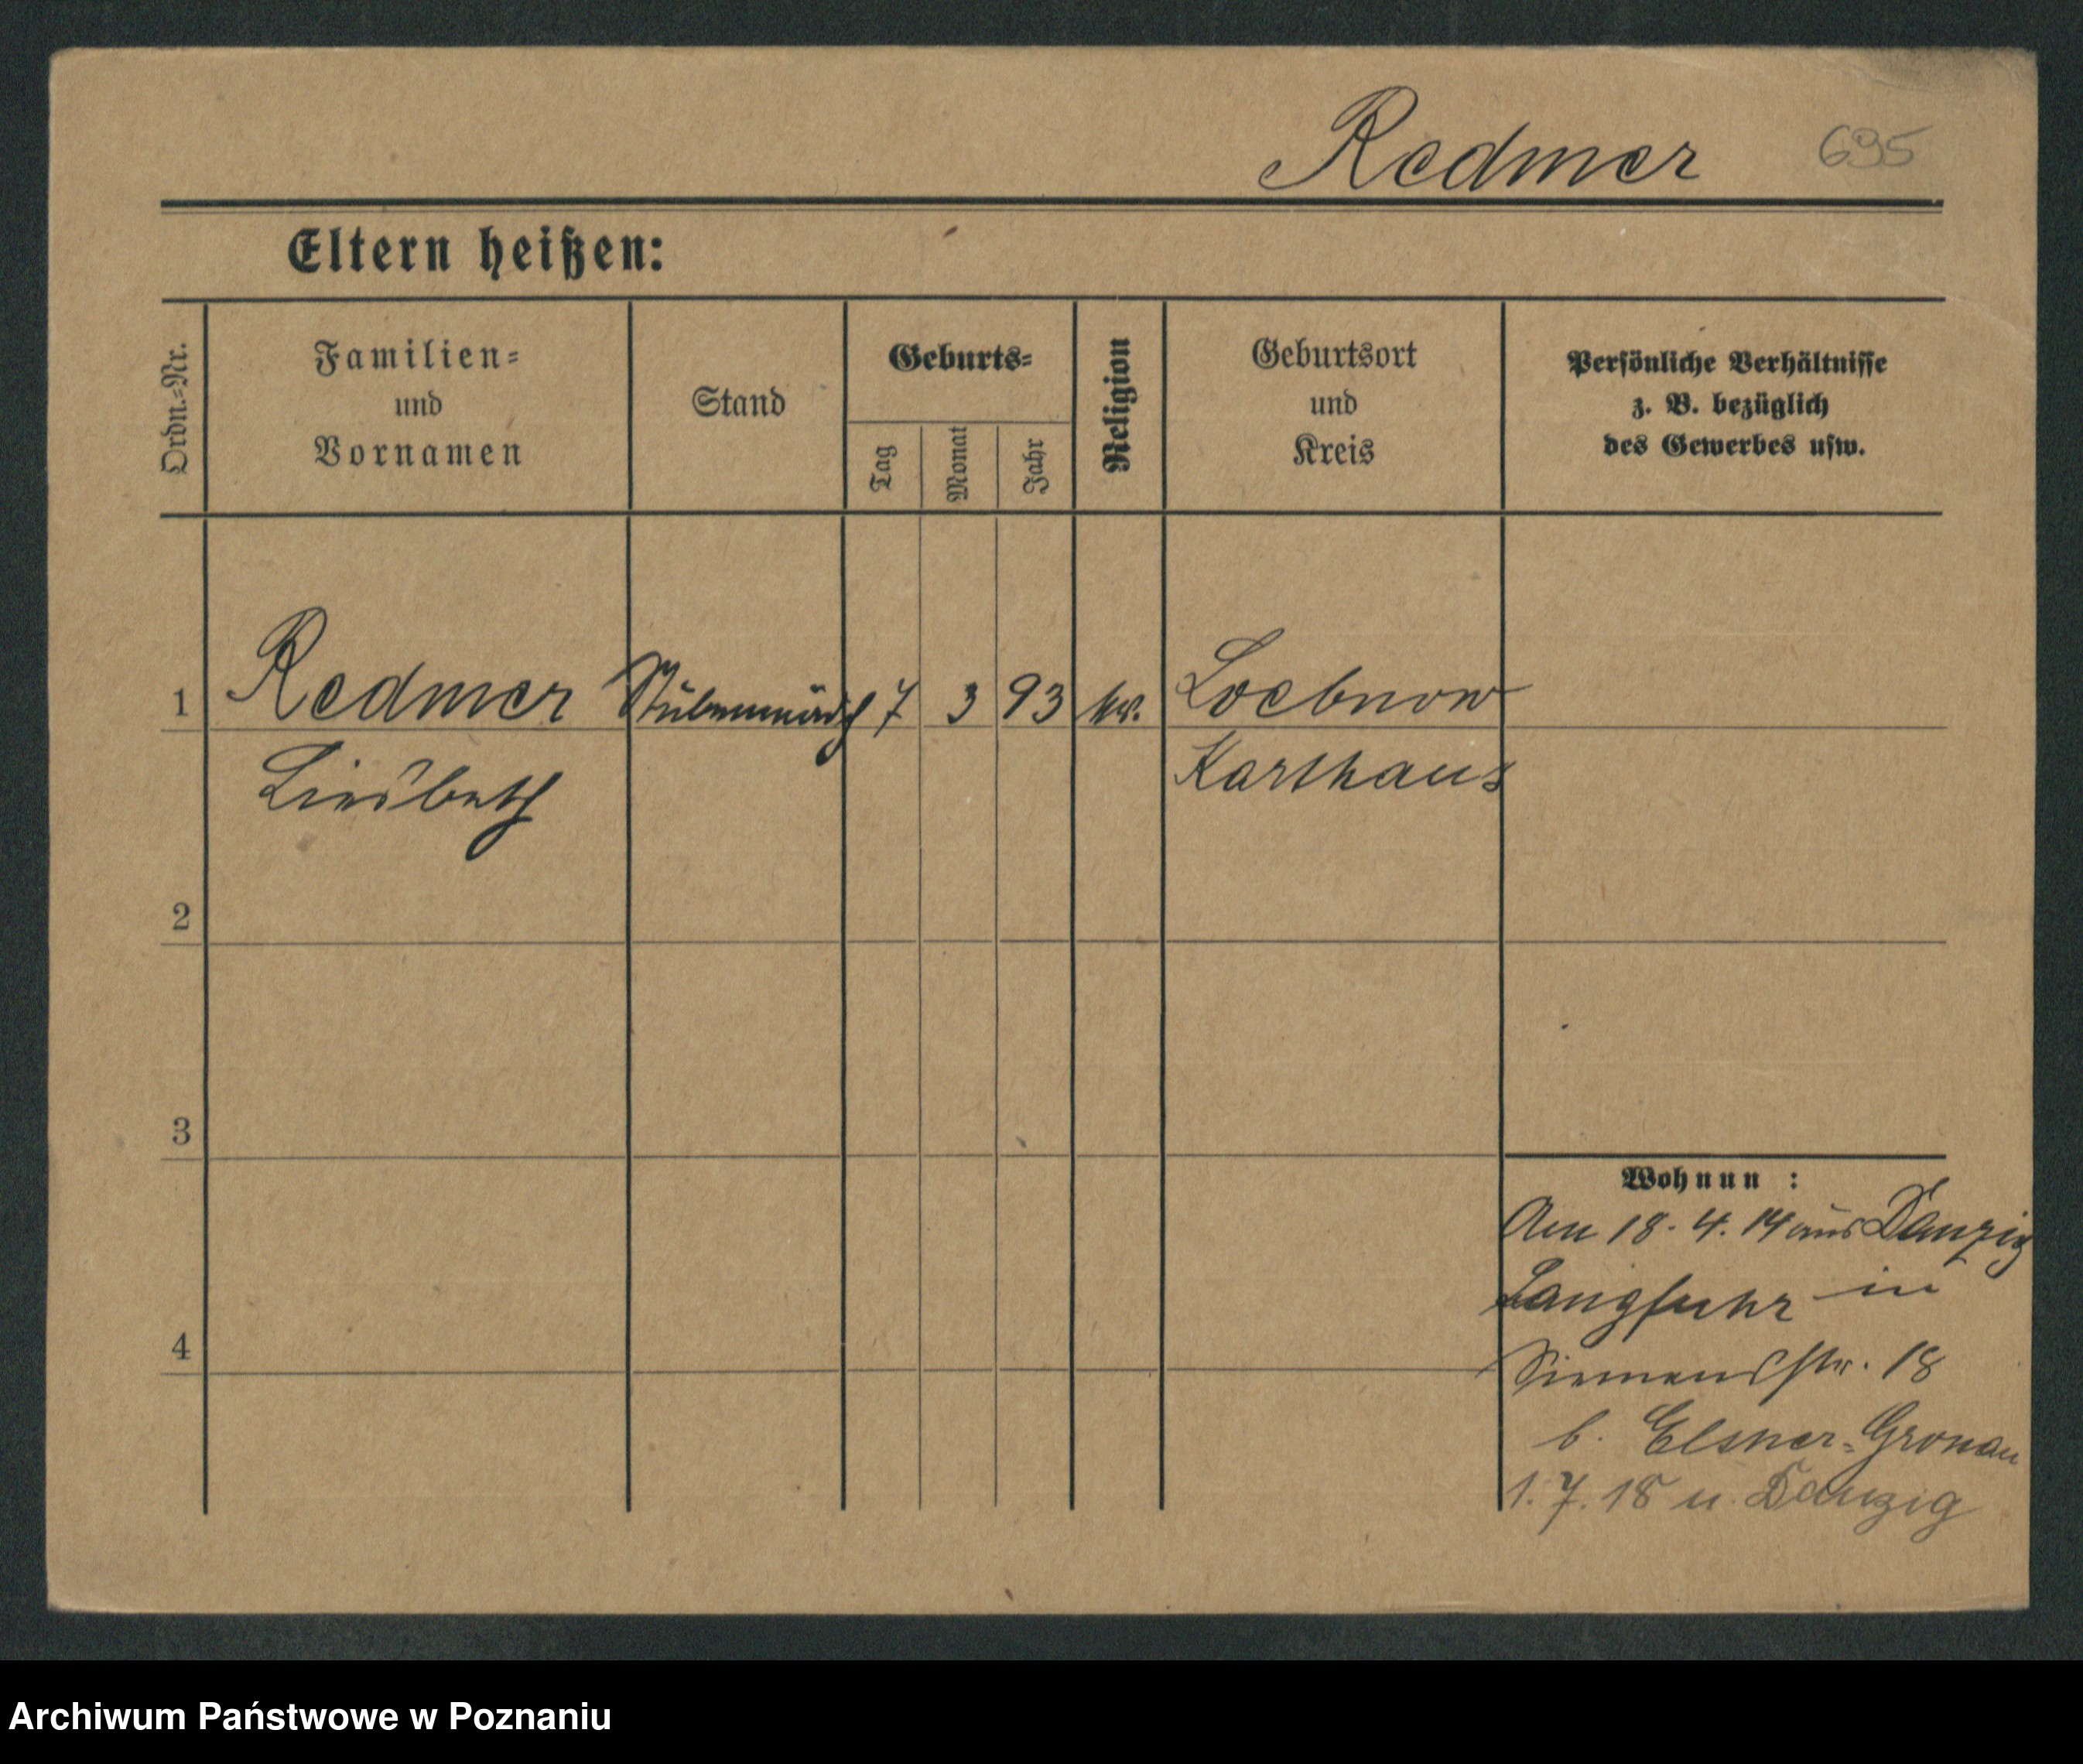 Redmer 695
Eltern heißen:
Ordn.=Nr.
Familien=
und
Vornamen
Stand
Geburts=
Tag
Monat
Jahr
Religion
Geburtsort
und
Kreis
Persönliche Verhältnisse
z. B. bezüglich
des Gewerbes usw.
1 Redmer 7 3 93 Loebnow
Liesbeth Karthaus
2
3
4
Wohnun :
Am 18. 4. 14 aus Danzig
Langfuhr in
Siemensstr. 18
b. Elsner=Gronau
1. 7. 18 u. Danzig
Archiwum Państwowe w Poznaniu